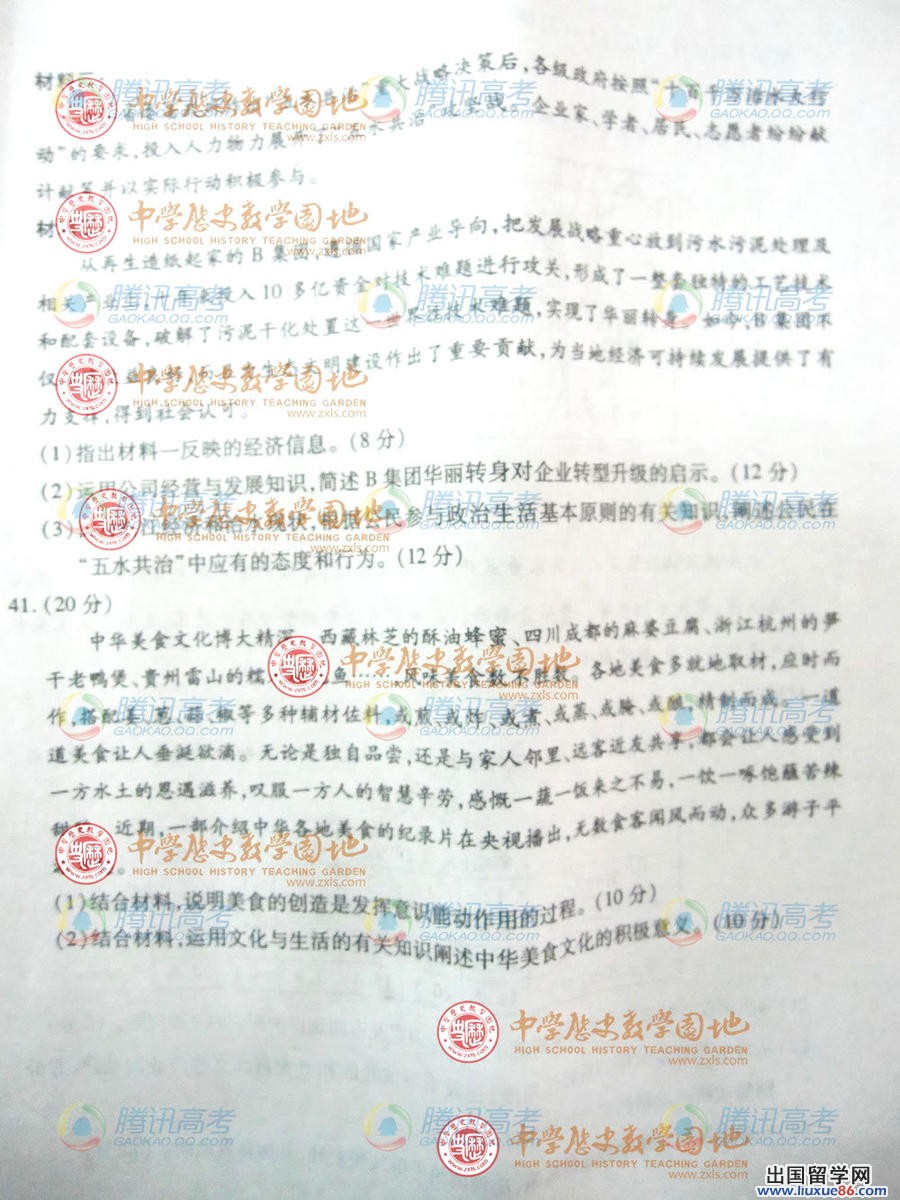 材料二:
大战略决策后,各级政府按照“十百千万治水大行
动”的要求,投入人力物力展 水共治 攻坚战。企业家、学者、居民、志愿者纷纷献
计献策并以实际行动积极参与。
材
从再生造纸起家的B集团, 国家产业导向,把发展战略重心放到污水污泥处理及
相关产业上,十年来投入10多亿资金对技术难题进行攻关,形成了一整套独特的工艺技术
和配套设备,破解了污泥干化处置这一世界性技术难题,实现了华丽转身。如今,B集团不
仅 生态文明建设作出了重要贡献,为当地经济可持续发展提供了有
力支撑,得到社会认可。
(1)指出材料一反映的经济信息。(8分)
(2)运用公司经营与发展知识,简述B集团华丽转身对企业转型升级的启示。(12分)
(3) 江经济和治水现状,根据公民参与政治生活基本原则的有关知识,阐述公民在
“五水共治”中应有的态度和行为。(12分)
41.(20分)
中华美食文化博大精深。西藏林芝的酥油蜂蜜、四川成都的麻婆豆腐、浙江杭州的笋
干老鸭煲、贵州雷山的糯 鱼……风味美食数不胜数。各地美食多就地取材,应时而
作,搭配姜、葱、蒜、椒等多种辅材佐料,或煎、或炸、或煮、或蒸、或腌、或酿,精制而成。一道
道美食让人垂涎欲滴。无论是独自品尝,还是与家人邻里、远客近友共享,都会让人感受到
一方水土的恩遇滋养,叹服一方人的智慧辛劳,感慨一蔬一饭来之不易,一饮一啄饱蘸苦辣
甜酸。近期,一部介绍中华各地美食的纪录片在央视播出,无数食客闻风而动,众多游子平
(1)结合材料,说明美食的创造是发挥意识能动作用的过程。(10分)
(2)结合材料,运用文化与生活的有关知识阐述中华美食文化的积极意义。(10分)
中学历史教学园地
HIGH SCHOOL HISTORY TEACHING GARDEN
www.zxls.com
腾讯高考
GAOKAO.QQ.COM
出国留学网
www.liuxue86.com